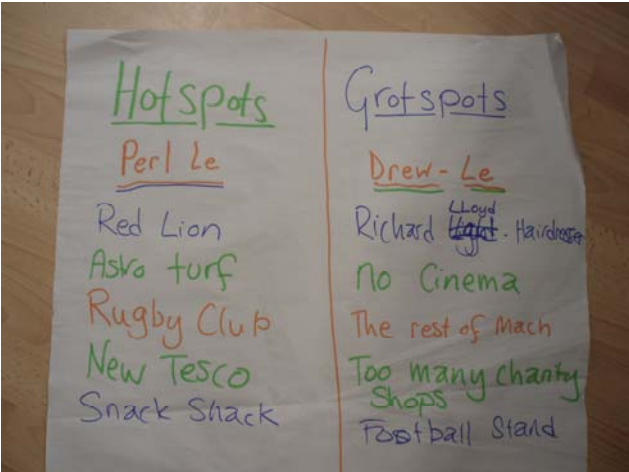 Hotspots
Perl Le
Red Lion
Astro turf
Rugby Club
New Tesco
Snack Shack
Grotspots
Drew-Le
LLoyd
Richard - Hairdresser
no Cinema
The rest of Mach
Too many charity
Shops
Football Stand